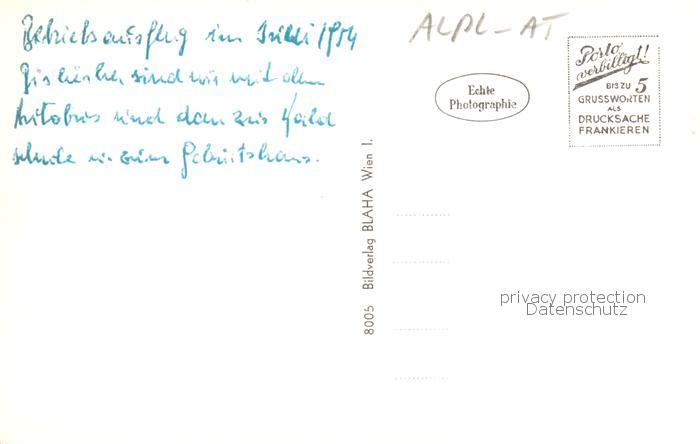 Betriebsausflug im Juli 1954
Bis hierher sind wir mit dem
Autobus und dann zur Wald
schule u. zum Geburtshaus.
ALPL-AT
Echte
Photographie
Porto
verbilligt!
BIS ZU 5
GRUSSWORTEN
ALS
DRUCKSACHE
FRANKIEREN
8005 Bildverlag BLAHA Wien I.
privacy protection
Datenschutz